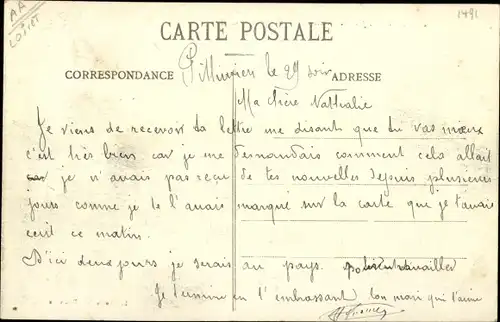 AA
LOIRET
1491
CARTE POSTALE
CORRESPONDANCE
ADRESSE
Pithiviers le 29 soir
Ma chère Nathalie
Je viens de recevoir ta lettre me disant que tu vas mieux
c'est très bien car je me demandais comment cela allait
car je n'avais pas reçu de tes nouvelles depuis plusieurs
jours comme je te l'avais marqué sur la carte que je t'avais
écrit ce matin.
D'ici deux jours je serais au pays. pour travailler
Je termine en t'embrassant ton mari qui t'aime